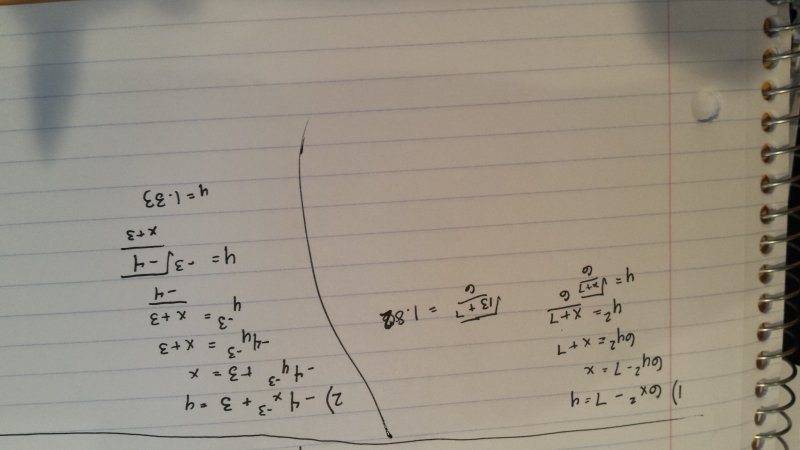 1) 6x² - 7 = y
6y² - 7 = x
6y² = x + 7
y² = x + 7
6
y = √x+7
6
√13 + 7 = 1.82
6
2) -4x⁻³ + 3 = y
-4y⁻³ + 3 = x
-4y⁻³ = x + 3
y⁻³ = x + 3
-4
y = ⁻³√-4
x + 3
y = 1.33